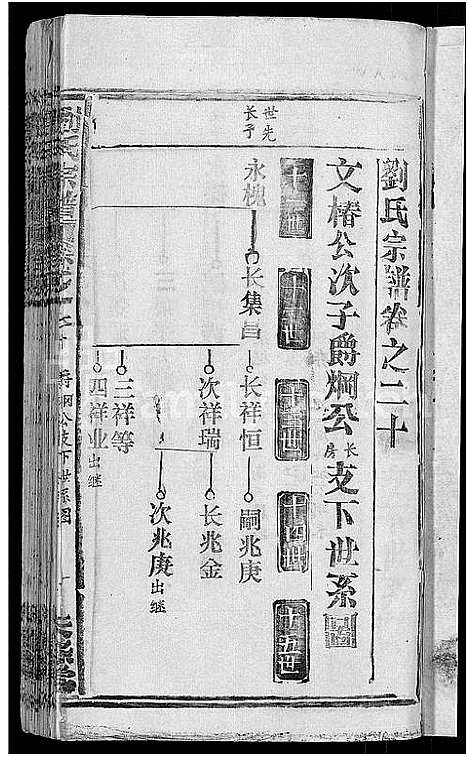 劉氏宗譜卷之二十
文椿公次子爵烱公長房支下世系圖
十一世
十二世
十三世
十四世
十五世
世先长子
永槐
长集昌
长祥恒
嗣兆庚
次祥瑞
长兆金
次兆庚出继
三祥等
四祥业出继
公支下世系图